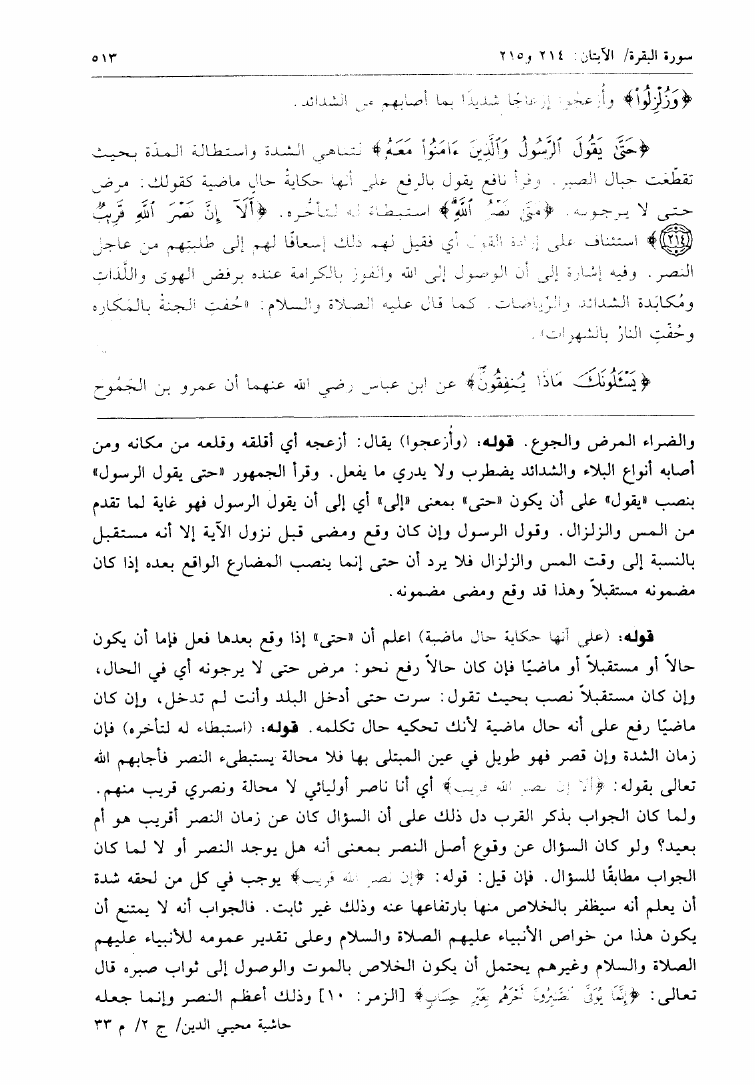 سورة البقرة/ الآيتان: ٢١٤ و٢١٥
٥١٣
﴿وَزُلْزِلُوا۟﴾ وأُزعجوا إزعاجًا شديدًا بما أصابهم من الشدائد.
﴿حَتَّىٰ يَقُولَ ٱلرَّسُولُ وَٱلَّذِينَ ءَامَنُوا۟ مَعَهُۥ﴾ لتناهي الشدة واستطالة المدّة بحيث
تقطّعت حبال الصبر. وقرأ نافع يقول بالرفع على أنها حكايةُ حالٍ ماضية كقولك: مرض
حتى لا يرجونه. ﴿مَتَىٰ نَصْرُ ٱللَّهِ﴾ استبطاءً له لتأخّره. ﴿أَلَآ إِنَّ نَصْرَ ٱللَّهِ قَرِيبٌ
﴿٢١٤﴾﴾ استئناف على إرادة القول أي فقيل لهم ذلك إسعافًا لهم إلى طلبتِهم من عاجل
النصر. وفيه إشارة إلى أن الوصول إلى الله والفوز بالكرامة عنده برفض الهوى واللّذاتِ
ومُكابَدة الشدائد والرّياضات. كما قال عليه الصلاة والسلام: «حُفتِ الجنةُ بالمكاره
وحُفّتِ النارُ بالشهوات».
﴿يَسْـَٔلُونَكَ مَاذَا يُنفِقُونَ﴾ عن ابن عباس رضي الله عنهما أن عمرو بن الجَمُوح
والضراء المرض والجوع. قوله: (وأزعجوا) يقال: أزعجه أي أقلقه وقلعه من مكانه ومن
أصابه أنواع البلاء والشدائد يضطرب ولا يدري ما يفعل. وقرأ الجمهور «حتى يقول الرسول»
بنصب «يقول» على أن يكون «حتى» بمعنى «إلى» أي إلى أن يقول الرسول فهو غاية لما تقدم
من المس والزلزال. وقول الرسول وإن كان وقع ومضى قبل نزول الآية إلا أنه مستقبل
بالنسبة إلى وقت المس والزلزال فلا يرد أن حتى إنما ينصب المضارع الواقع بعده إذا كان
مضمونه مستقبلاً وهذا قد وقع ومضى مضمونه.
قوله: (على أنها حكاية حال ماضية) اعلم أن «حتى» إذا وقع بعدها فعل فإما أن يكون
حالاً أو مستقبلاً أو ماضيًا فإن كان حالاً رفع نحو: مرض حتى لا يرجونه أي في الحال،
وإن كان مستقبلاً نصب بحيث تقول: سرت حتى أدخل البلد وأنت لم تدخل، وإن كان
ماضيًا رفع على أنه حال ماضية لأنك تحكيه حال تكلمه. قوله: (استبطاء له لتأخره) فإن
زمان الشدة وإن قصر فهو طويل في عين المبتلى بها فلا محالة يستبطىء النصر فأجابهم الله
تعالى بقوله: ﴿ألا إن نصر الله قريب﴾ أي أنا ناصر أوليائي لا محالة ونصري قريب منهم.
ولما كان الجواب بذكر القرب دل ذلك على أن السؤال كان عن زمان النصر أقريب هو أم
بعيد؟ ولو كان السؤال عن وقوع أصل النصر بمعنى أنه هل يوجد النصر أو لا لما كان
الجواب مطابقًا للسؤال. فإن قيل: قوله: ﴿إن نصر الله قريب﴾ يوجب في كل من لحقه شدة
أن يعلم أنه سيظفر بالخلاص منها بارتفاعها عنه وذلك غير ثابت. فالجواب أنه لا يمتنع أن
يكون هذا من خواص الأنبياء عليهم الصلاة والسلام وعلى تقدير عمومه للأنبياء عليهم
الصلاة والسلام وغيرهم يحتمل أن يكون الخلاص بالموت والوصول إلى ثواب صبره قال
تعالى: ﴿إِنَّمَا يُوَفَّى ٱلصَّٰبِرُونَ أَجْرَهُم بِغَيْرِ حِسَابٍ﴾ [الزمر: ١٠] وذلك أعظم النصر وإنما جعله
حاشية محيي الدين/ ج ٢/ م ٣٣